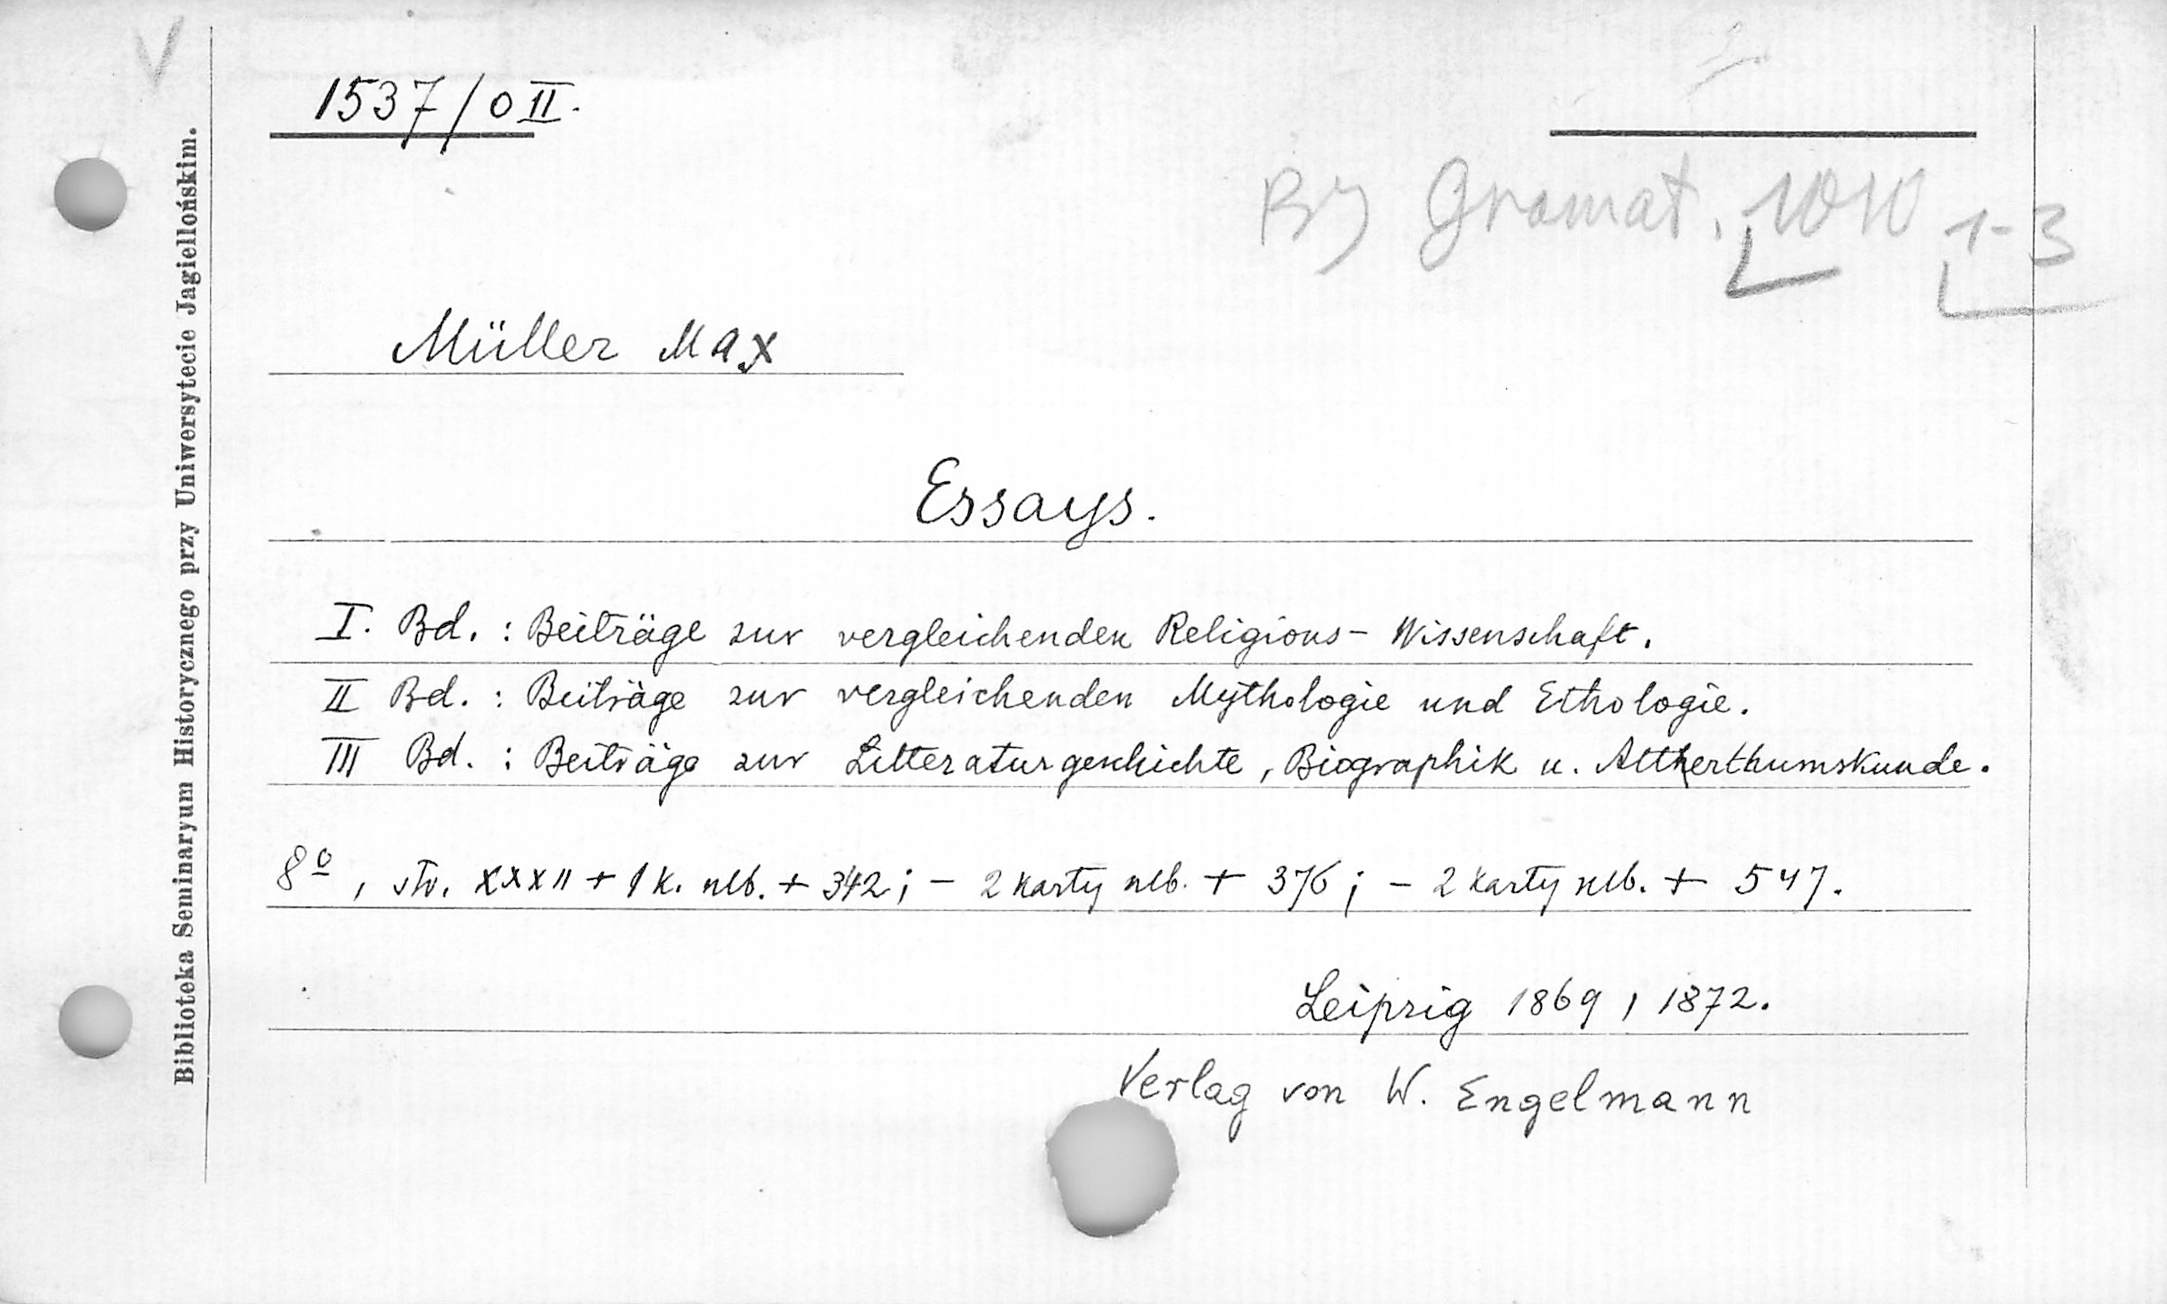 1537/0 II.
BJ Gramat. 1010 1-3
Müller Max
Essays.
I. Bd. : Beiträge zur vergleichenden Religions- Wissenschaft.
II Bd. : Beiträge zur vergleichenden Mythologie und Ethologie.
III Bd. : Beiträge zur Litteraturgeschichte, Biographik u. Altherthumskunde.
8º, str. XXXII + 1 k. nlb. + 342; - 2 karty nlb. + 376; - 2 karty nlb. + 547.
Leipzig 1869, 1872.
Verlag von W. Engelmann
Biblioteka Seminaryum Historycznego przy Uniwersytecie Jagiellońskim.